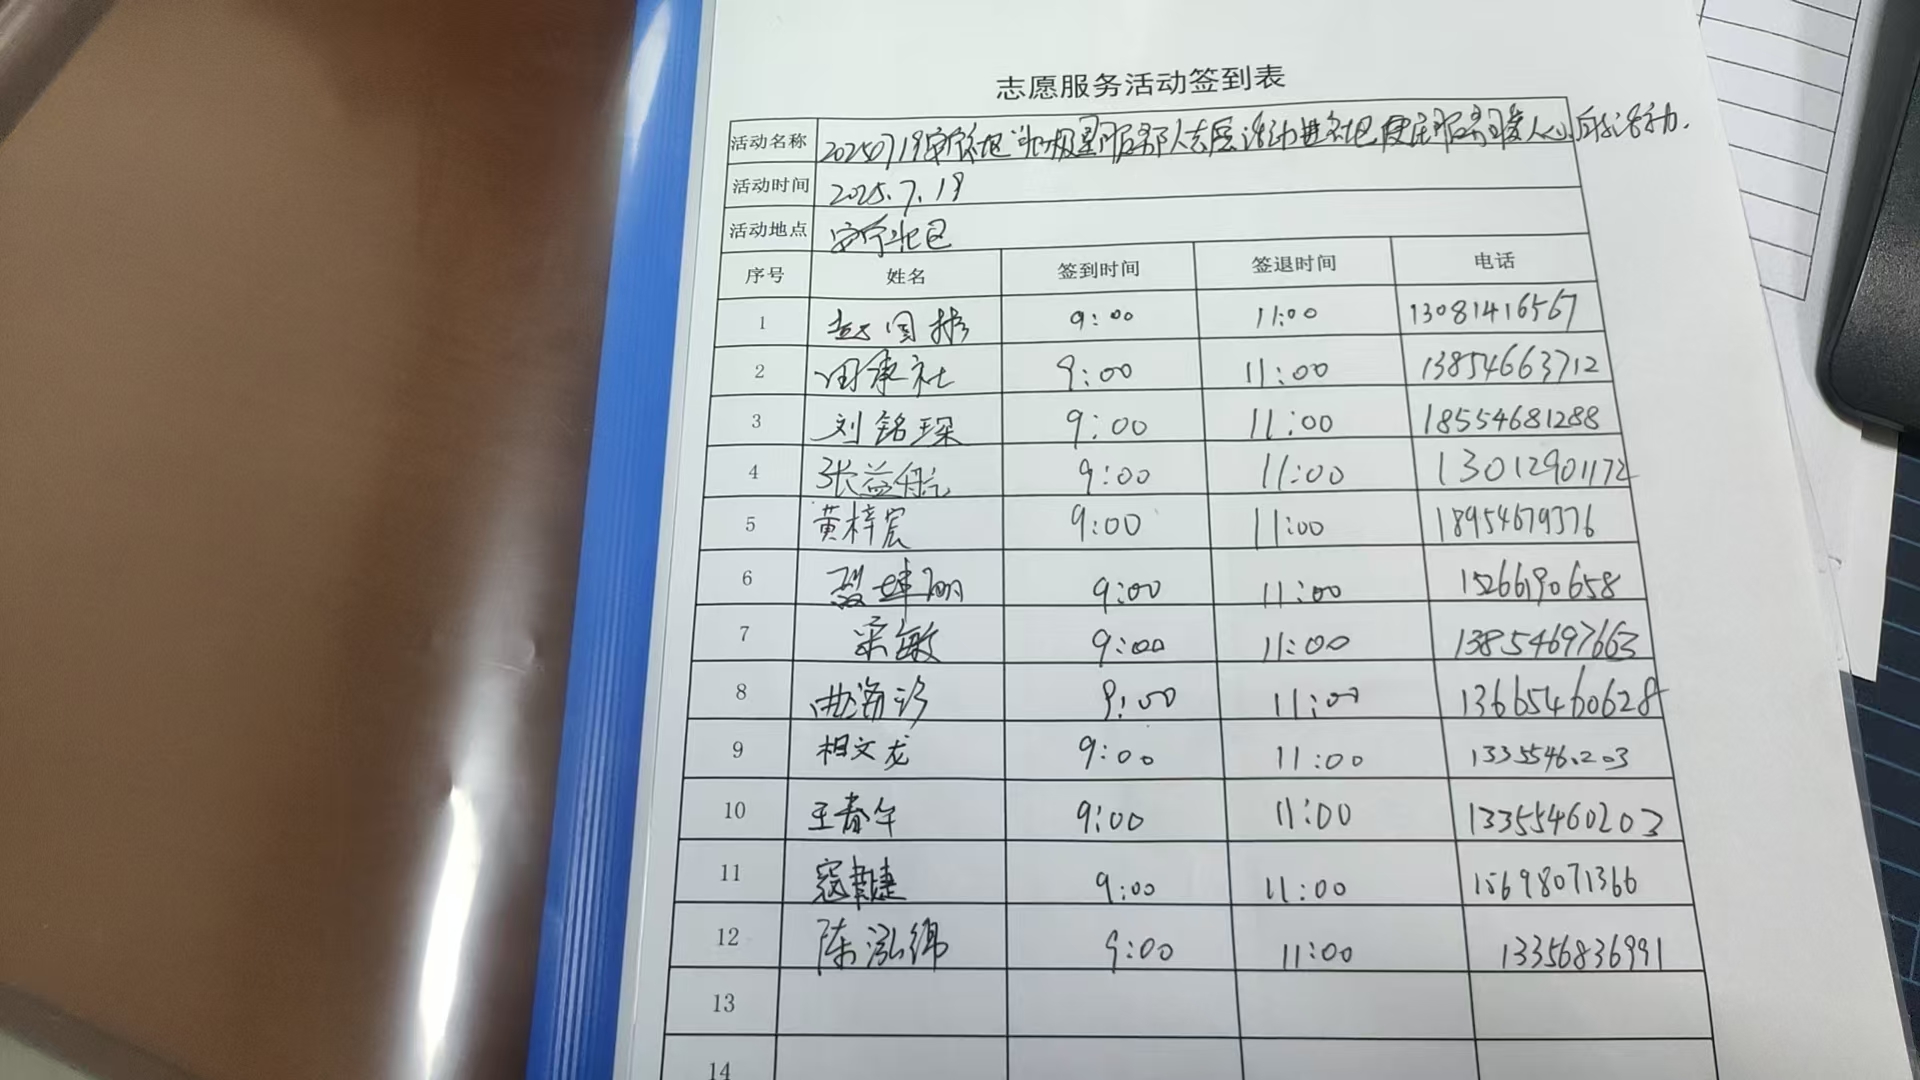 志愿服务活动签到表
活动名称 20250719安宁社区 志愿活动进社区便民服务暖人心 活动.
活动时间 2025.7.19
活动地点 安宁社区
序号 姓名 签到时间 签退时间 电话
1 赵国彬 9:00 11:00 13081416567
2 田承社 9:00 11:00 13854663712
3 刘铭琛 9:00 11:00 18554681288
4 张益航 9:00 11:00 13012901172
5 黄梓宸 9:00 11:00 18954679376
6 9:00 11:00 15266190658
7 梁敏 9:00 11:00 13854697663
8 曲海 9:00 11:00 13665460628
9 相文龙 9:00 11:00
10 王春午 9:00 11:00 13355460203
11 寇 9:00 11:00 15698071366
12 陈泓 9:00 11:00 13356836991
13
14